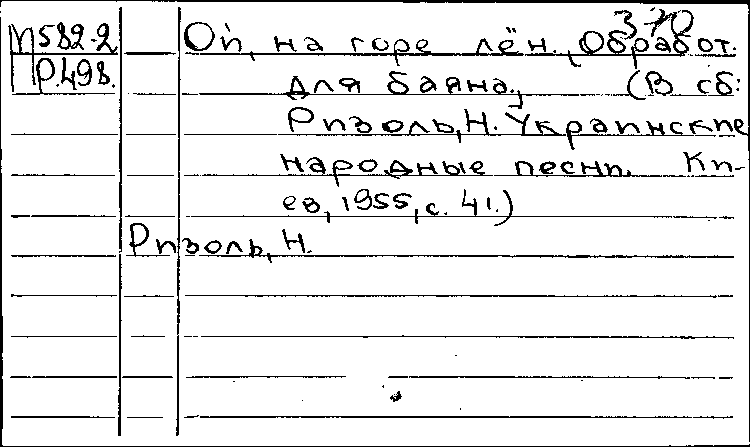 370
М582-2 Ой, на горе лён. (Обработ.
Р498. для баяна.) (В сб:
Ризоль, Н. Украинские
народные песни. Ки-
ев, 1955, с. 41.)
Ризоль, Н.